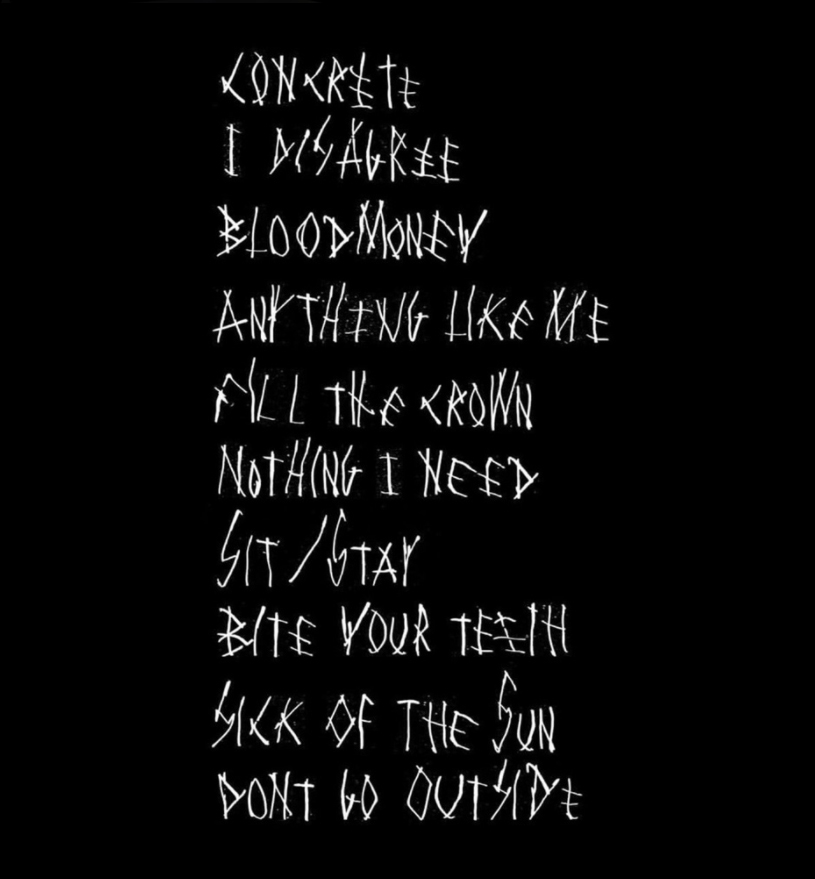 CONCRETE
I DISAGREE
BLOODMONEY
ANYTHING LIKE ME
FILL THE CROWN
NOTHING I NEED
SIT/STAY
BITE YOUR TEETH
SICK OF THE SUN
DONT GO OUTSIDE